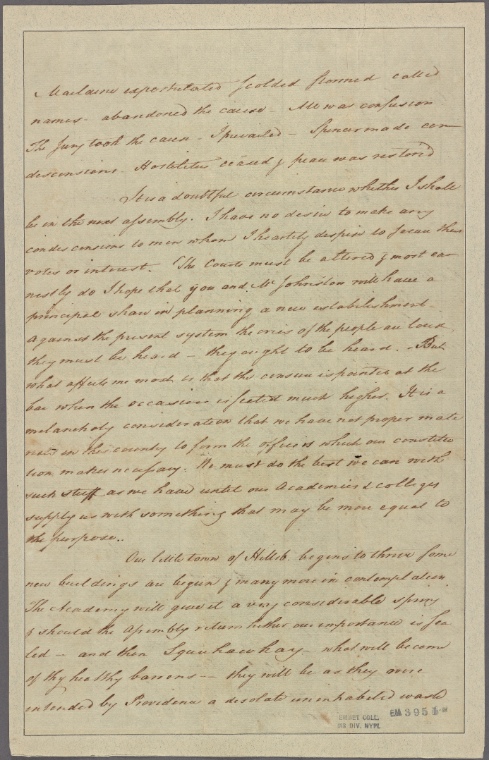 Maclaine expostulated scolded stormed called
names - abandoned the cause - All was confusion
The Jury took the cause - I prevailed - Spencer made con-
descensions - Hostilities ceased & peace was restored
It is a doubtful circumstance whether I shall
be in the next assembly. I have no desire to make any
condescensions to men whom I heartily despise to secure their
votes or interest. The Courts must be altered & most ear
nestly do I hope that you and Mr Johnston will have a
principal share in planning a new establishment.
Against the present system the cries of the people are loud
they must be heard - they ought to be heard. But
what affects me most is that the censure is pointed at the
bar when the occasion is seated much higher. It is a
melancholy consideration that we have not proper mate
rials in this county to form the officers which our constitu
tion makes necessary. We must do the best we can with
such stuff as we have until our Academies & colleges
supply us with something that may be more equal to
the purpose..
Our little town of Hillsb. begins to thrive some
new buildings are begun & many more in contemplation
The Academy will give it a very considerable spring
& should the Assembly return hither our importance is sea
led - and then what will become
of thy healthy barrens -- they will be as they were
intended by Providence a desolate uninhabited waste
EMMET COLL.
MS DIV. NYPL